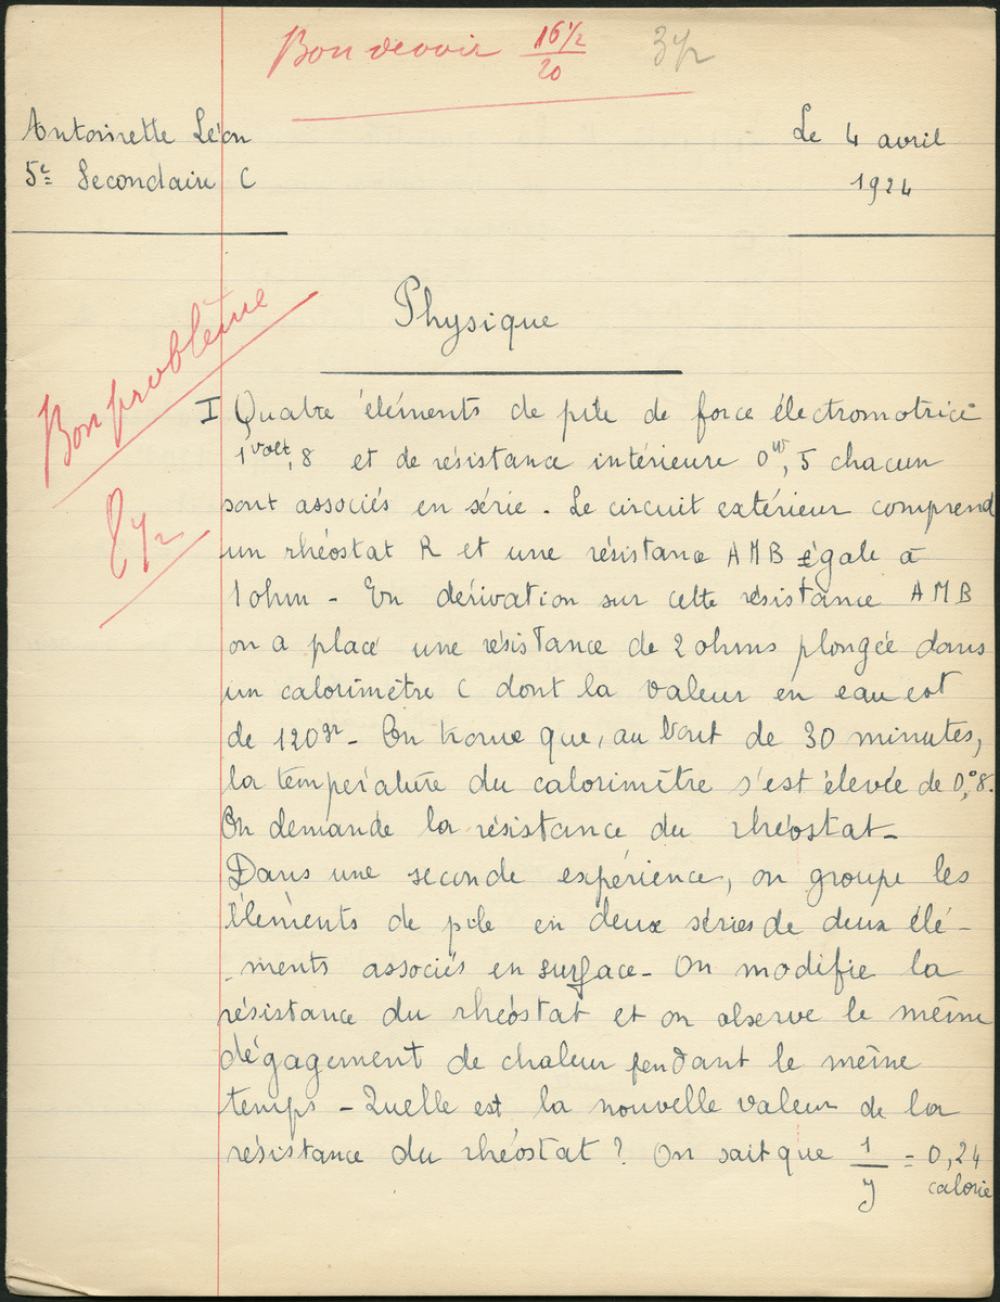 Bon devoir 16 1/2
20
3 1/2
Antoinette Léon
Le 4 avril
5e Secondaire C
1924
Physique
Bon problème
8 1/2
I Quatre éléments de pile de force électromotrice
1 volt,8 et de résistance intérieure 0ω,5 chacun
sont associés en série . Le circuit extérieur comprend
un rhéostat R et une résistance AMB égale à
1 ohm - En dérivation sur cette résistance AMB
on a placé une résistance de 2 ohms plongée dans
un calorimètre C dont la valeur en eau est
de 120gr - On trouve que, au bout de 30 minutes,
la température du calorimètre s'est élevée de 0°,8.
On demande la résistance du rhéostat -
Dans une seconde expérience, on groupe les
éléments de pile en deux séries de deux élé -
- ments associés en surface - On modifie la
résistance du rhéostat et on observe le même
dégagement de chaleur pendant le même
temps - Quelle est la nouvelle valeur de la
résistance du rhéostat ? On sait que 1/J = 0,24
calorie